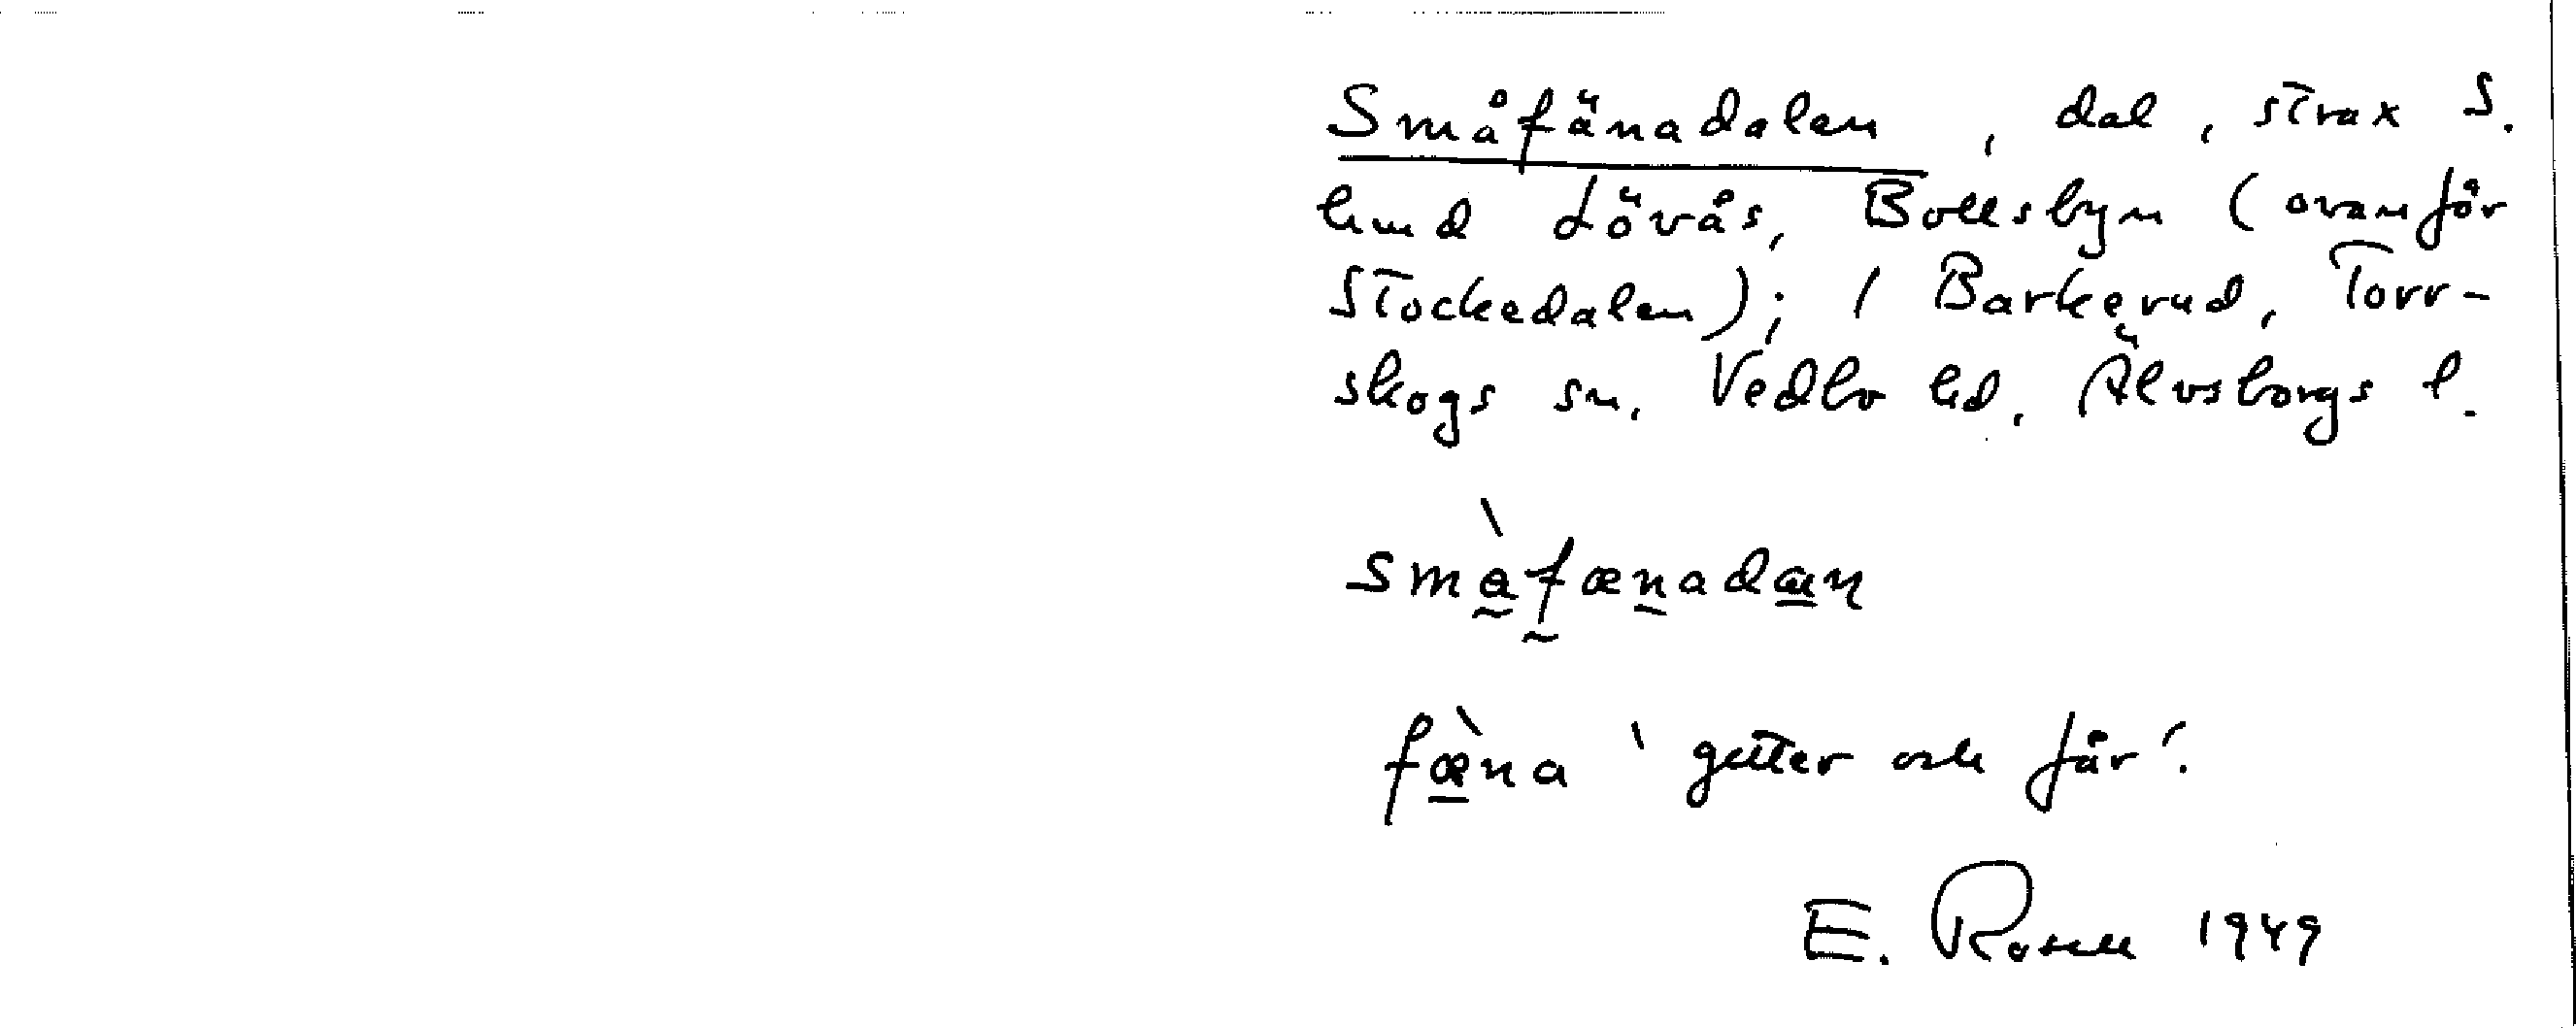 Småfänadalen, dal, strax S.
hmd Lövås, Bollsbyn (ovanför
Stockedalen); / Barkerud, Torr-
skogs sn. Vedbo hd. Älvsborgs l.
småfænadæn
fæ̀na 'getter och får'.
E. Rosell 1949